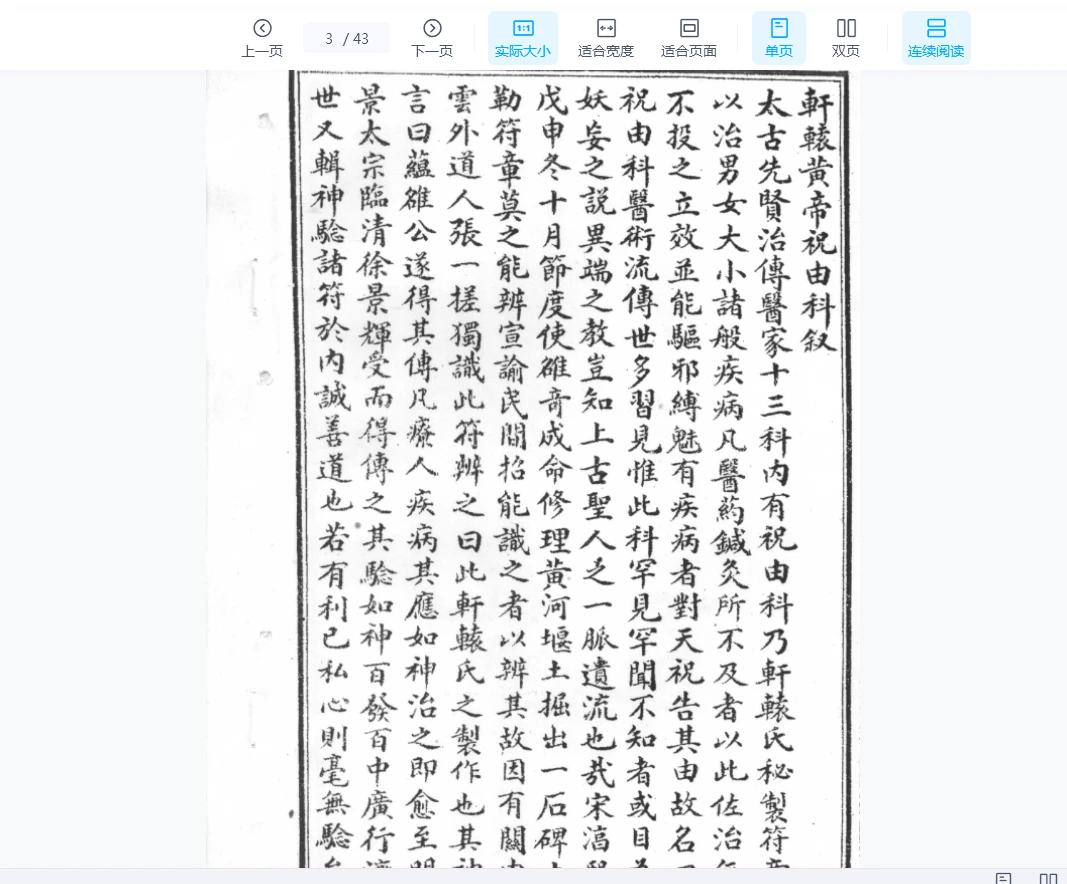 上一页
3 / 43
下一页
1:1
实际大小
适合宽度
适合页面
单页
双页
连续阅读
軒轅黄帝祝由科叙
太古先賢治傳醫家十三科内有祝由科乃軒轅氏秘製符
以治男女大小諸般疾病凡醫药鍼灸所不及者以此佐治
不投之立效並能驅邪縛魅有疾病者對天祝告其由故名
祝由科醫術流傳世多習見惟此科罕見罕聞不知者或目
妖妄之説異端之教豈知上古聖人之一脈遺流也哉宋淳
戊申冬十月節度使雒奇成命修理黄河堰土掘出一石碑
勒符章莫之能辨宣諭民間招能識之者以辨其故因有關
雲外道人張一搓獨識此符辨之曰此軒轅氏之製作也其
言曰蘊雒公遂得其傳凡療人疾病其應如神治之即愈至
景太宗臨清徐景輝受而得傳之其騐如神百發百中廣行
世又輯神騐諸符於内誠善道也若有利已私心則毫無騐